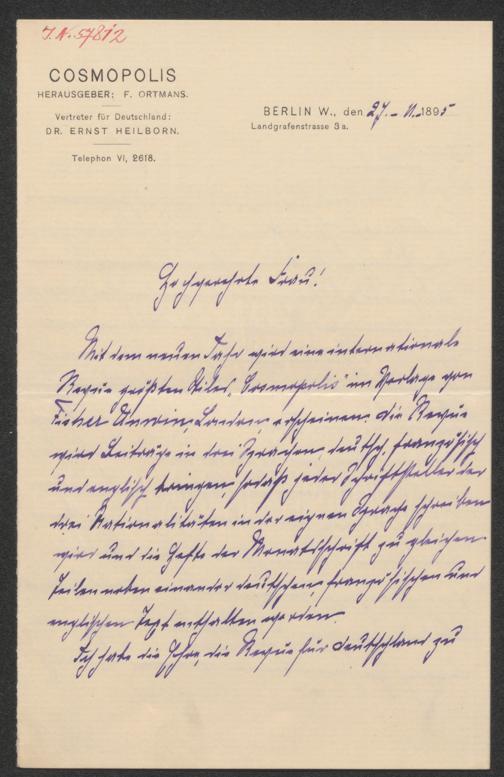 J.N. 57812
COSMOPOLIS
HERAUSGEBER: F. ORTMANS.
Vertreter für Deutschland:
DR. ERNST HEILBORN.
Telephon VI, 2618.
BERLIN W., den 27. - 11. 1895
Landgrafenstrasse 3a.
Hochgeehrte Frau!
Mit dem neuen Jahr wird eine internationale
Revue größten Stiles, „Cosmopolis“ im Verlage von
Fisher Unwin, London, erscheinen. Die Revue
wird Beiträge in drei Sprachen, deutsch, französisch
und englisch, bringen, sodaß jeder Schriftsteller der
drei Nationalitäten in der eignen Sprache schreiben
wird und die Hefte der Monatsschrift zu gleichen
Teilen neben einander deutschen, französischen und
englischen Text enthalten werden.
Ich habe die Ehre, die Revue für Deutschland zu